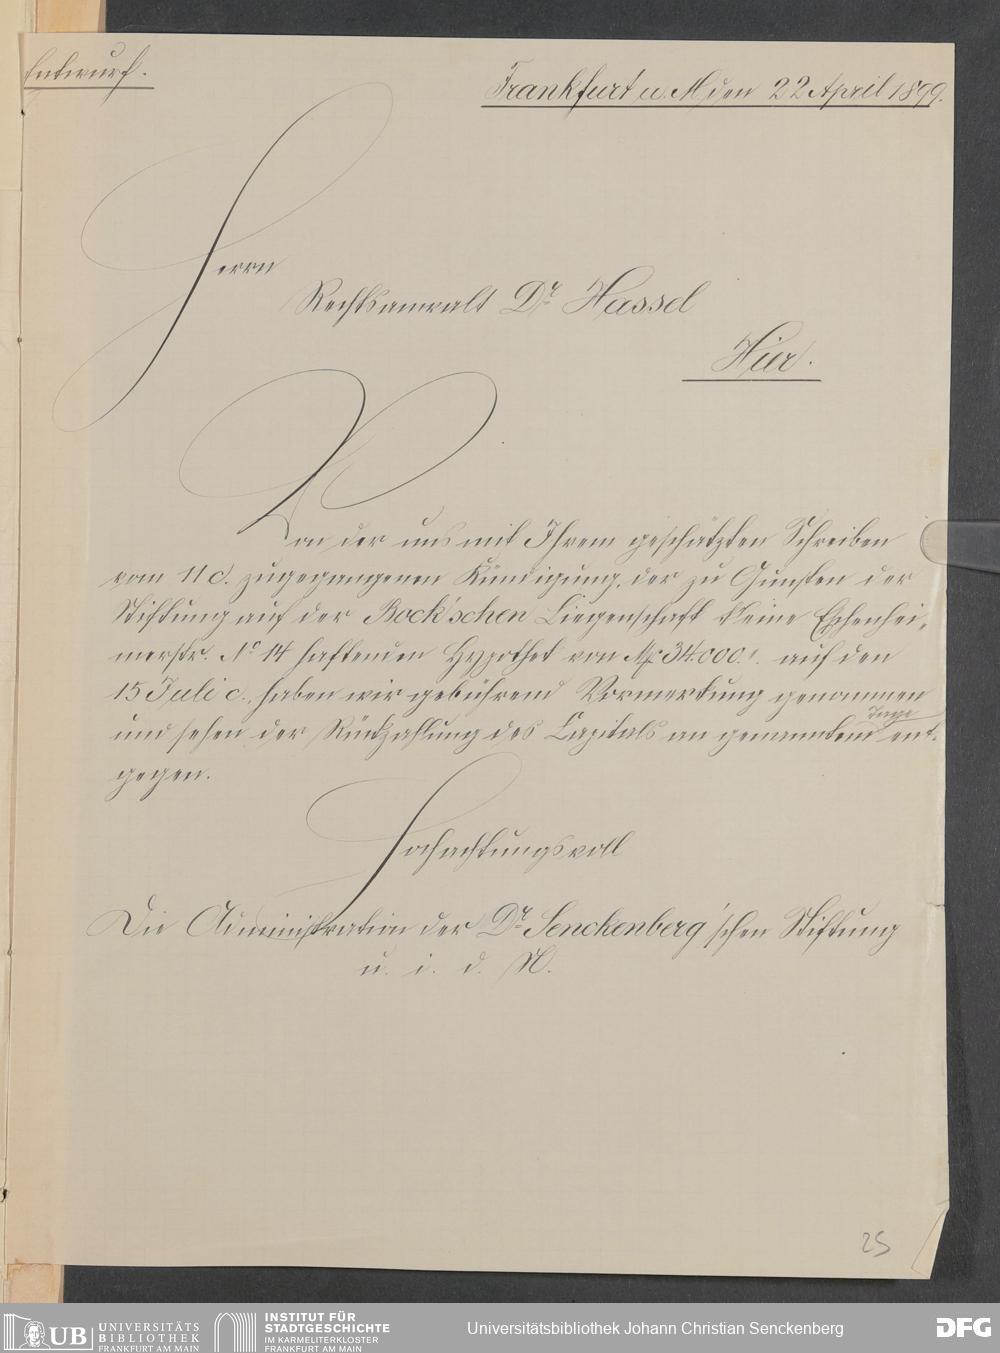 Entwurf.
Frankfurt a. M den 22 April 1899.
Herrn
Rechtsanwalt Dr Hassel
Hier.
Von der uns mit Ihrem geschätzten Schreiben
vom 11 c. zugegangenen Kündigung, der zu Gunsten der
Stiftung auf der Bock'schen Liegenschaft kleine Eschenhei-
merstr. No 14 haftenden Hypothek von M 34.000.- auf den
15 Juli c., haben wir gebührend Vormerkung genommen
und sehen der Rückzahlung des Capitals an genanntem Tage ent-
gegen.
Hochachtungsvoll
Die Administration der Dr Senckenberg'schen Stiftung
u. i. d. N.
25
UB UNIVERSITÄTS BIBLIOTHEK FRANKFURT AM MAIN
INSTITUT FÜR STADTGESCHICHTE IM KARMELITERKLOSTER FRANKFURT AM MAIN
Universitätsbibliothek Johann Christian Senckenberg
DFG